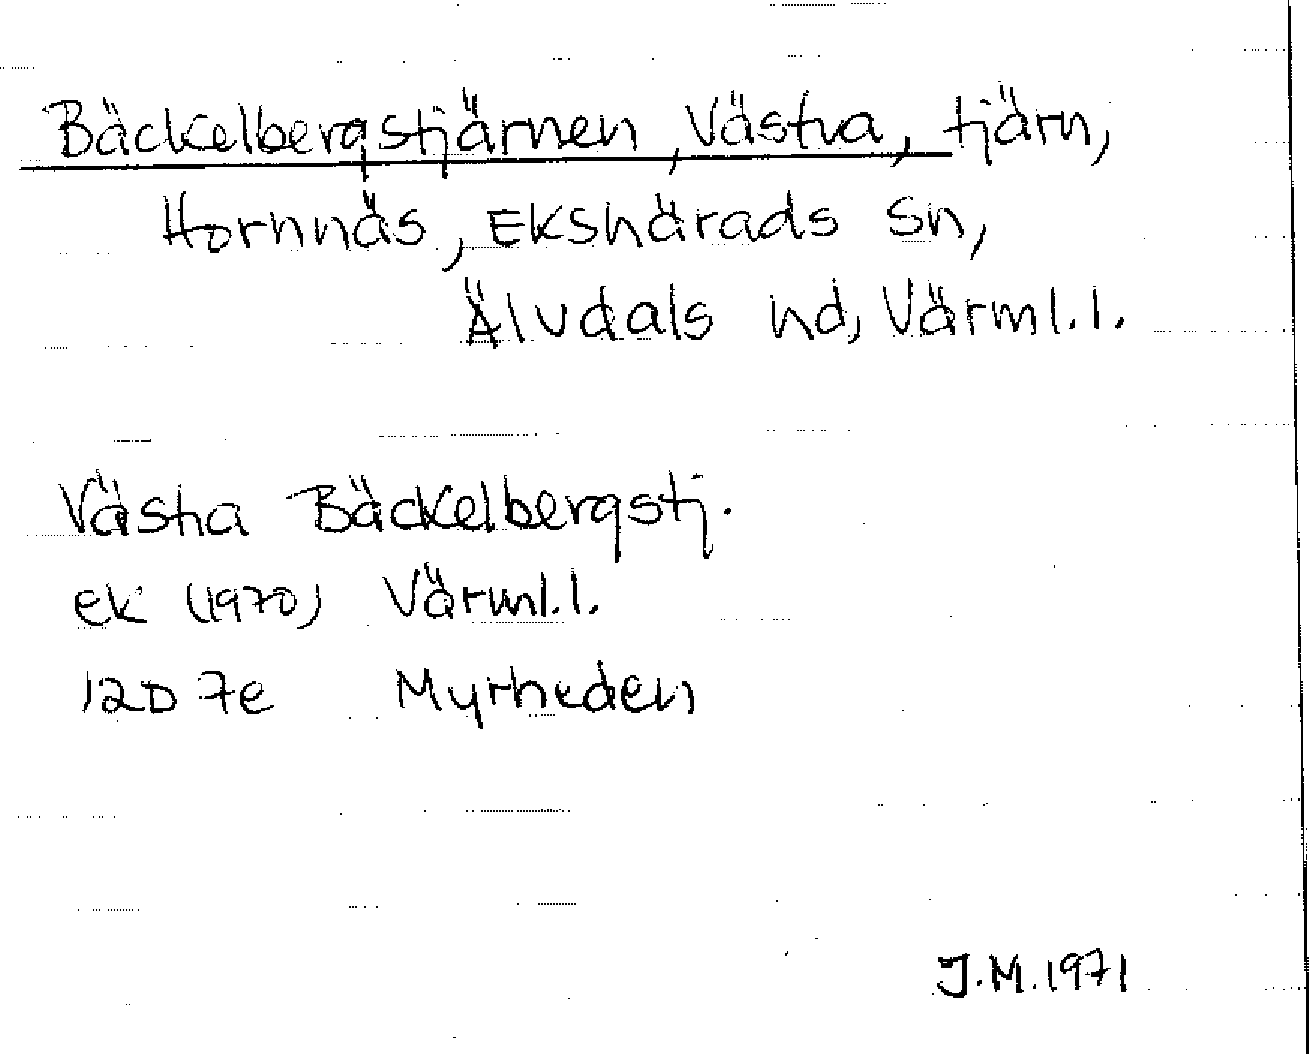 Bäckelbergstjärnen, Västra, tjärn,
Hornnäs, Ekshärads sn,
Älvdals hd, Värml. l.
Västra Bäckelbergstj.
ek (1970) Värml. l.
12D 7e Myrheden
J.M. 1971